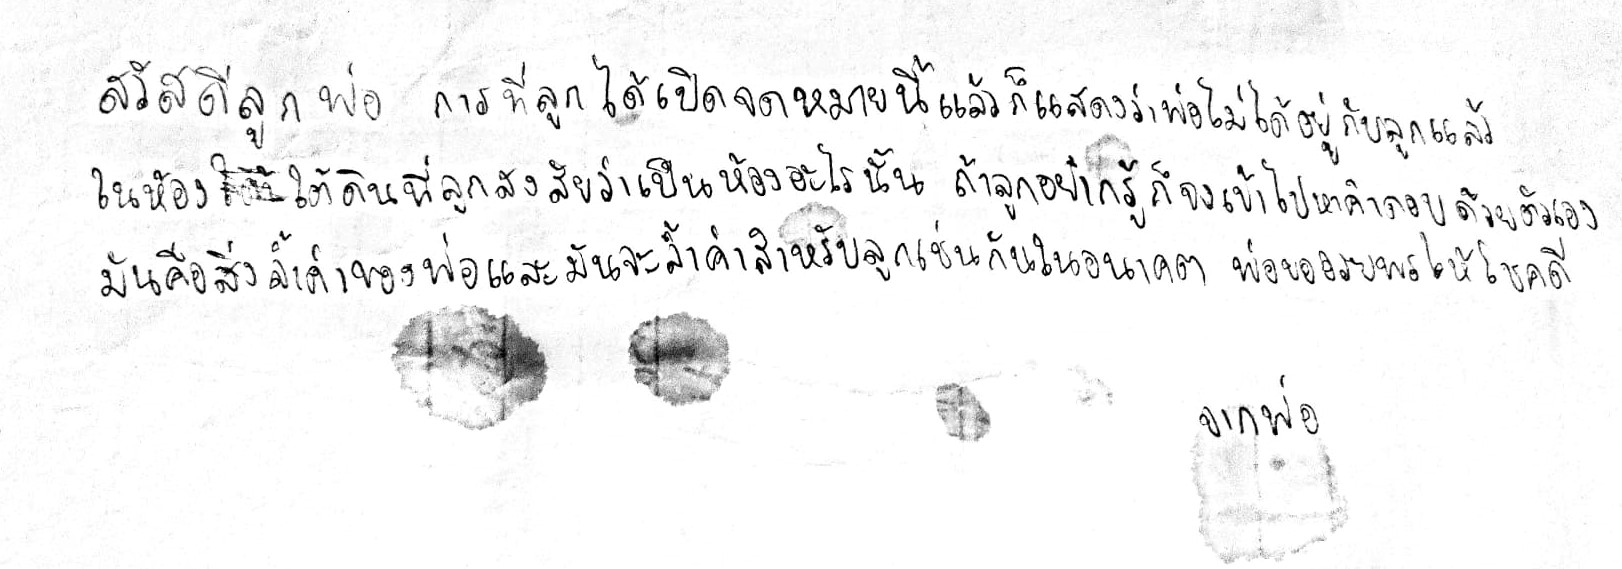 สวัสดีลูกพ่อ การที่ลูกได้เปิดจดหมายนี้แล้วก็แสดงว่าพ่อไม่ได้อยู่กับลูกแล้ว
ในห้อง ใต้ดินที่ลูกสงสัยว่าเป็นห้องอะไรนั้น ถ้าลูกอยากรู้ก็จงเข้าไปหาคำตอบด้วยตัวเอง
มันคือสิ่งล้ำค่าของพ่อและมันจะล้ำค่าสำหรับลูกเช่นกันในอนาคต พ่อขออวยพรให้โชคดี
จากพ่อ